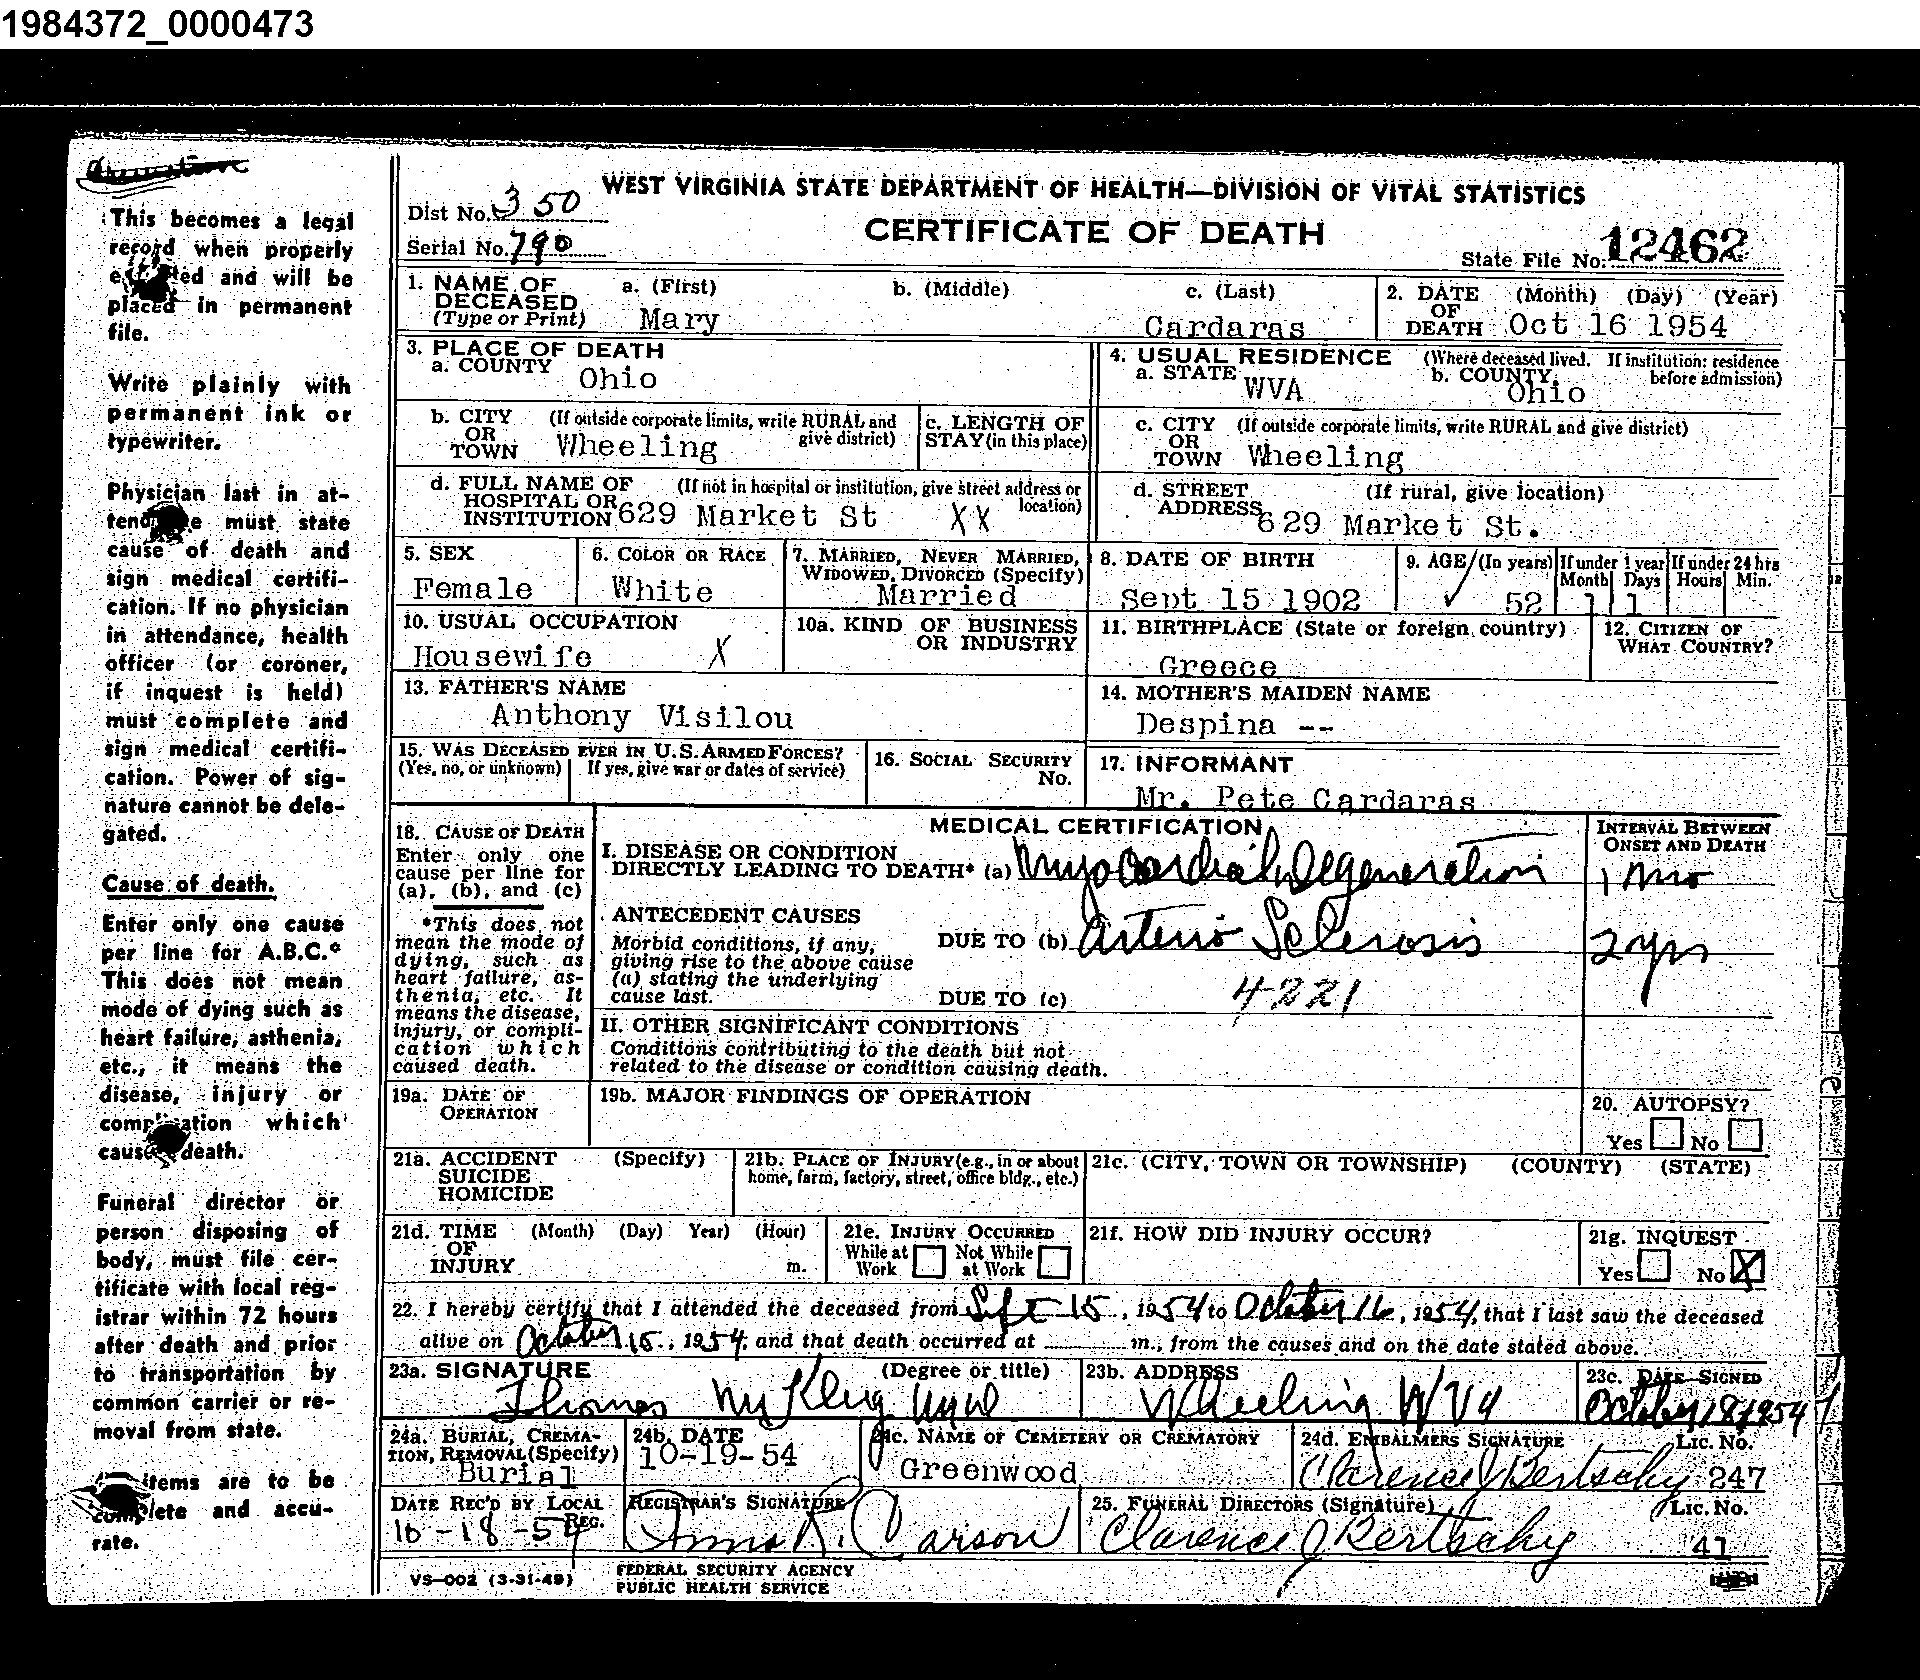 1984372_0000473
This becomes a legal
record when properly
and will be
placed in permanent
file.
Write plainly with
permanent ink or
typewriter.
Physician last in at-
must state
cause of death and
sign medical certifi-
cation. If no physician
in attendance, health
officer (or coroner,
if inquest is held)
must complete and
sign medical certifi-
cation. Power of sig-
nature cannot be dele-
gated.
Cause of death.
Enter only one cause
per line for A.B.C.*
This does not mean
mode of dying such as
heart failure, asthenia,
etc., it means the
disease, injury or
which
death.
Funeral director or
person disposing of
body, must file cer-
tificate with local reg-
istrar within 72 hours
after death and prior
to transportation by
common carrier or re-
moval from state.
items are to be
and accu-
rate.
WEST VIRGINIA STATE DEPARTMENT OF HEALTH—DIVISION OF VITAL STATISTICS
Dist No. 350
CERTIFICATE OF DEATH
Serial No. 790
State File No. 12462
1. NAME OF DECEASED (Type or Print) a. (First) Mary b. (Middle) c. (Last) Cardaras
2. DATE OF DEATH (Month) (Day) (Year) Oct 16 1954
3. PLACE OF DEATH
a. COUNTY Ohio
4. USUAL RESIDENCE (Where deceased lived. If institution: residence before admission)
a. STATE WVA b. COUNTY Ohio
b. CITY OR TOWN (If outside corporate limits, write RURAL and give district) Wheeling
c. LENGTH OF STAY (in this place)
c. CITY OR TOWN (If outside corporate limits, write RURAL and give district) Wheeling
d. FULL NAME OF HOSPITAL OR INSTITUTION (If not in hospital or institution, give street address or location) 629 Market St XX
d. STREET ADDRESS (If rural, give location) 629 Market St.
5. SEX Female
6. COLOR OR RACE White
7. MARRIED, NEVER MARRIED, WIDOWED, DIVORCED (Specify) Married
8. DATE OF BIRTH Sept 15 1902
9. AGE (In years) 52 If under 1 year Month 1 Days 1 If under 24 hrs Hours Min.
10. USUAL OCCUPATION Housewife X
10a. KIND OF BUSINESS OR INDUSTRY
11. BIRTHPLACE (State or foreign country) Greece
12. CITIZEN OF WHAT COUNTRY?
13. FATHER'S NAME Anthony Visilou
14. MOTHER'S MAIDEN NAME Despina --
15. WAS DECEASED EVER IN U.S. ARMED FORCES? (Yes, no, or unknown) If yes, give war or dates of service)
16. SOCIAL SECURITY No.
17. INFORMANT Mr. Pete Cardaras
18. CAUSE OF DEATH
Enter only one
cause per line for
(a), (b), and (c)
*This does not
mean the mode of
dying, such as
heart failure, as-
thenia, etc. It
means the disease,
injury, or compli-
cation which
caused death.
MEDICAL CERTIFICATION
INTERVAL BETWEEN ONSET AND DEATH
I. DISEASE OR CONDITION
DIRECTLY LEADING TO DEATH* (a) Myocardial Degeneration 1 Mo
ANTECEDENT CAUSES
Morbid conditions, if any,
giving rise to the above cause
(a) stating the underlying
cause last.
DUE TO (b) Arterio Sclerosis 2 yrs
DUE TO (c) 4221
II. OTHER SIGNIFICANT CONDITIONS
Conditions contributing to the death but not
related to the disease or condition causing death.
19a. DATE OF OPERATION
19b. MAJOR FINDINGS OF OPERATION
20. AUTOPSY? Yes No
21a. ACCIDENT SUICIDE HOMICIDE (Specify)
21b. PLACE OF INJURY (e.g., in or about home, farm, factory, street, office bldg., etc.)
21c. (CITY, TOWN OR TOWNSHIP) (COUNTY) (STATE)
21d. TIME OF INJURY (Month) (Day) Year) (Hour) m.
21e. INJURY OCCURRED While at Work Not While at Work
21f. HOW DID INJURY OCCUR?
21g. INQUEST Yes No X
22. I hereby certify that I attended the deceased from Sept 15, 1954 to October 16, 1954, that I last saw the deceased
alive on October 15, 1954, and that death occurred at m., from the causes and on the date stated above.
23a. SIGNATURE (Degree or title) Thomas
23b. ADDRESS Wheeling W Va
23c. DATE SIGNED October 18 1954
24a. BURIAL, CREMATION, REMOVAL (Specify) Burial
24b. DATE 10-19-54
24c. NAME OF CEMETERY OR CREMATORY Greenwood
24d. EMBALMERS SIGNATURE Lic. No. Clarence J Bertschy 247
DATE REC'D BY LOCAL REG. 10-18-54
REGISTRAR'S SIGNATURE Anna R. Carson
25. FUNERAL DIRECTORS (Signature) Lic. No. Clarence J Bertschy 41
VS-002 (3-31-49)
FEDERAL SECURITY AGENCY
PUBLIC HEALTH SERVICE